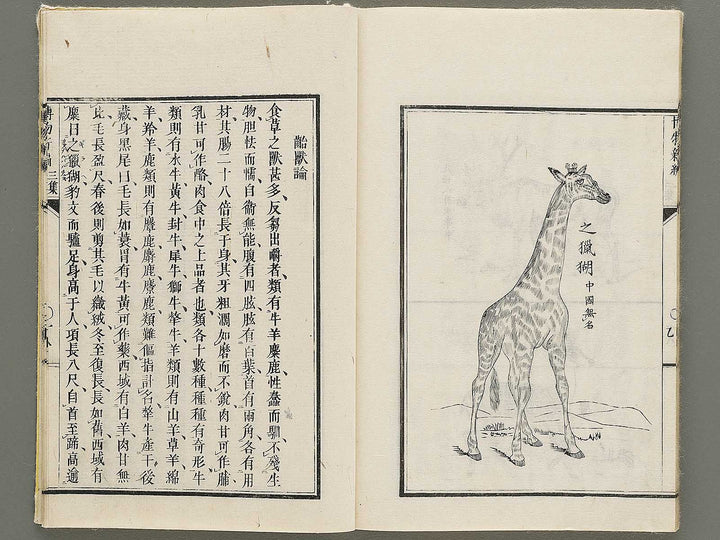 博物新編
之獵猢
中國無名
齝獸論
食草之獸甚多反芻出嚼者類有牛羊麋鹿性蠢而馴不殘生
物胆怯而懦自衞無能腹有四胘胘有百葉首有兩角各有用
材其腸二十八倍長于身其牙粗濶如磨而不銳肉甘可作脯
乳甘可作酪肉食中之上品者也類各十數種種種有奇形牛
類則有水牛黃牛封牛犀牛獅牛犛牛羊類則有山羊草羊綿
羊羚羊鹿類則有麈鹿麝鹿麋鹿類難傴指計名犛牛產干後
藏身黑尾曰毛長如簑胃有牛黃可作藥西域有白羊肉甘無
比毛長盈尺春後則剪其毛以織絨冬至復長長如舊西域有
麋曰之獵猢豹文而驢足身高于人項長八尺自首至蹄高逾
博物新編三集